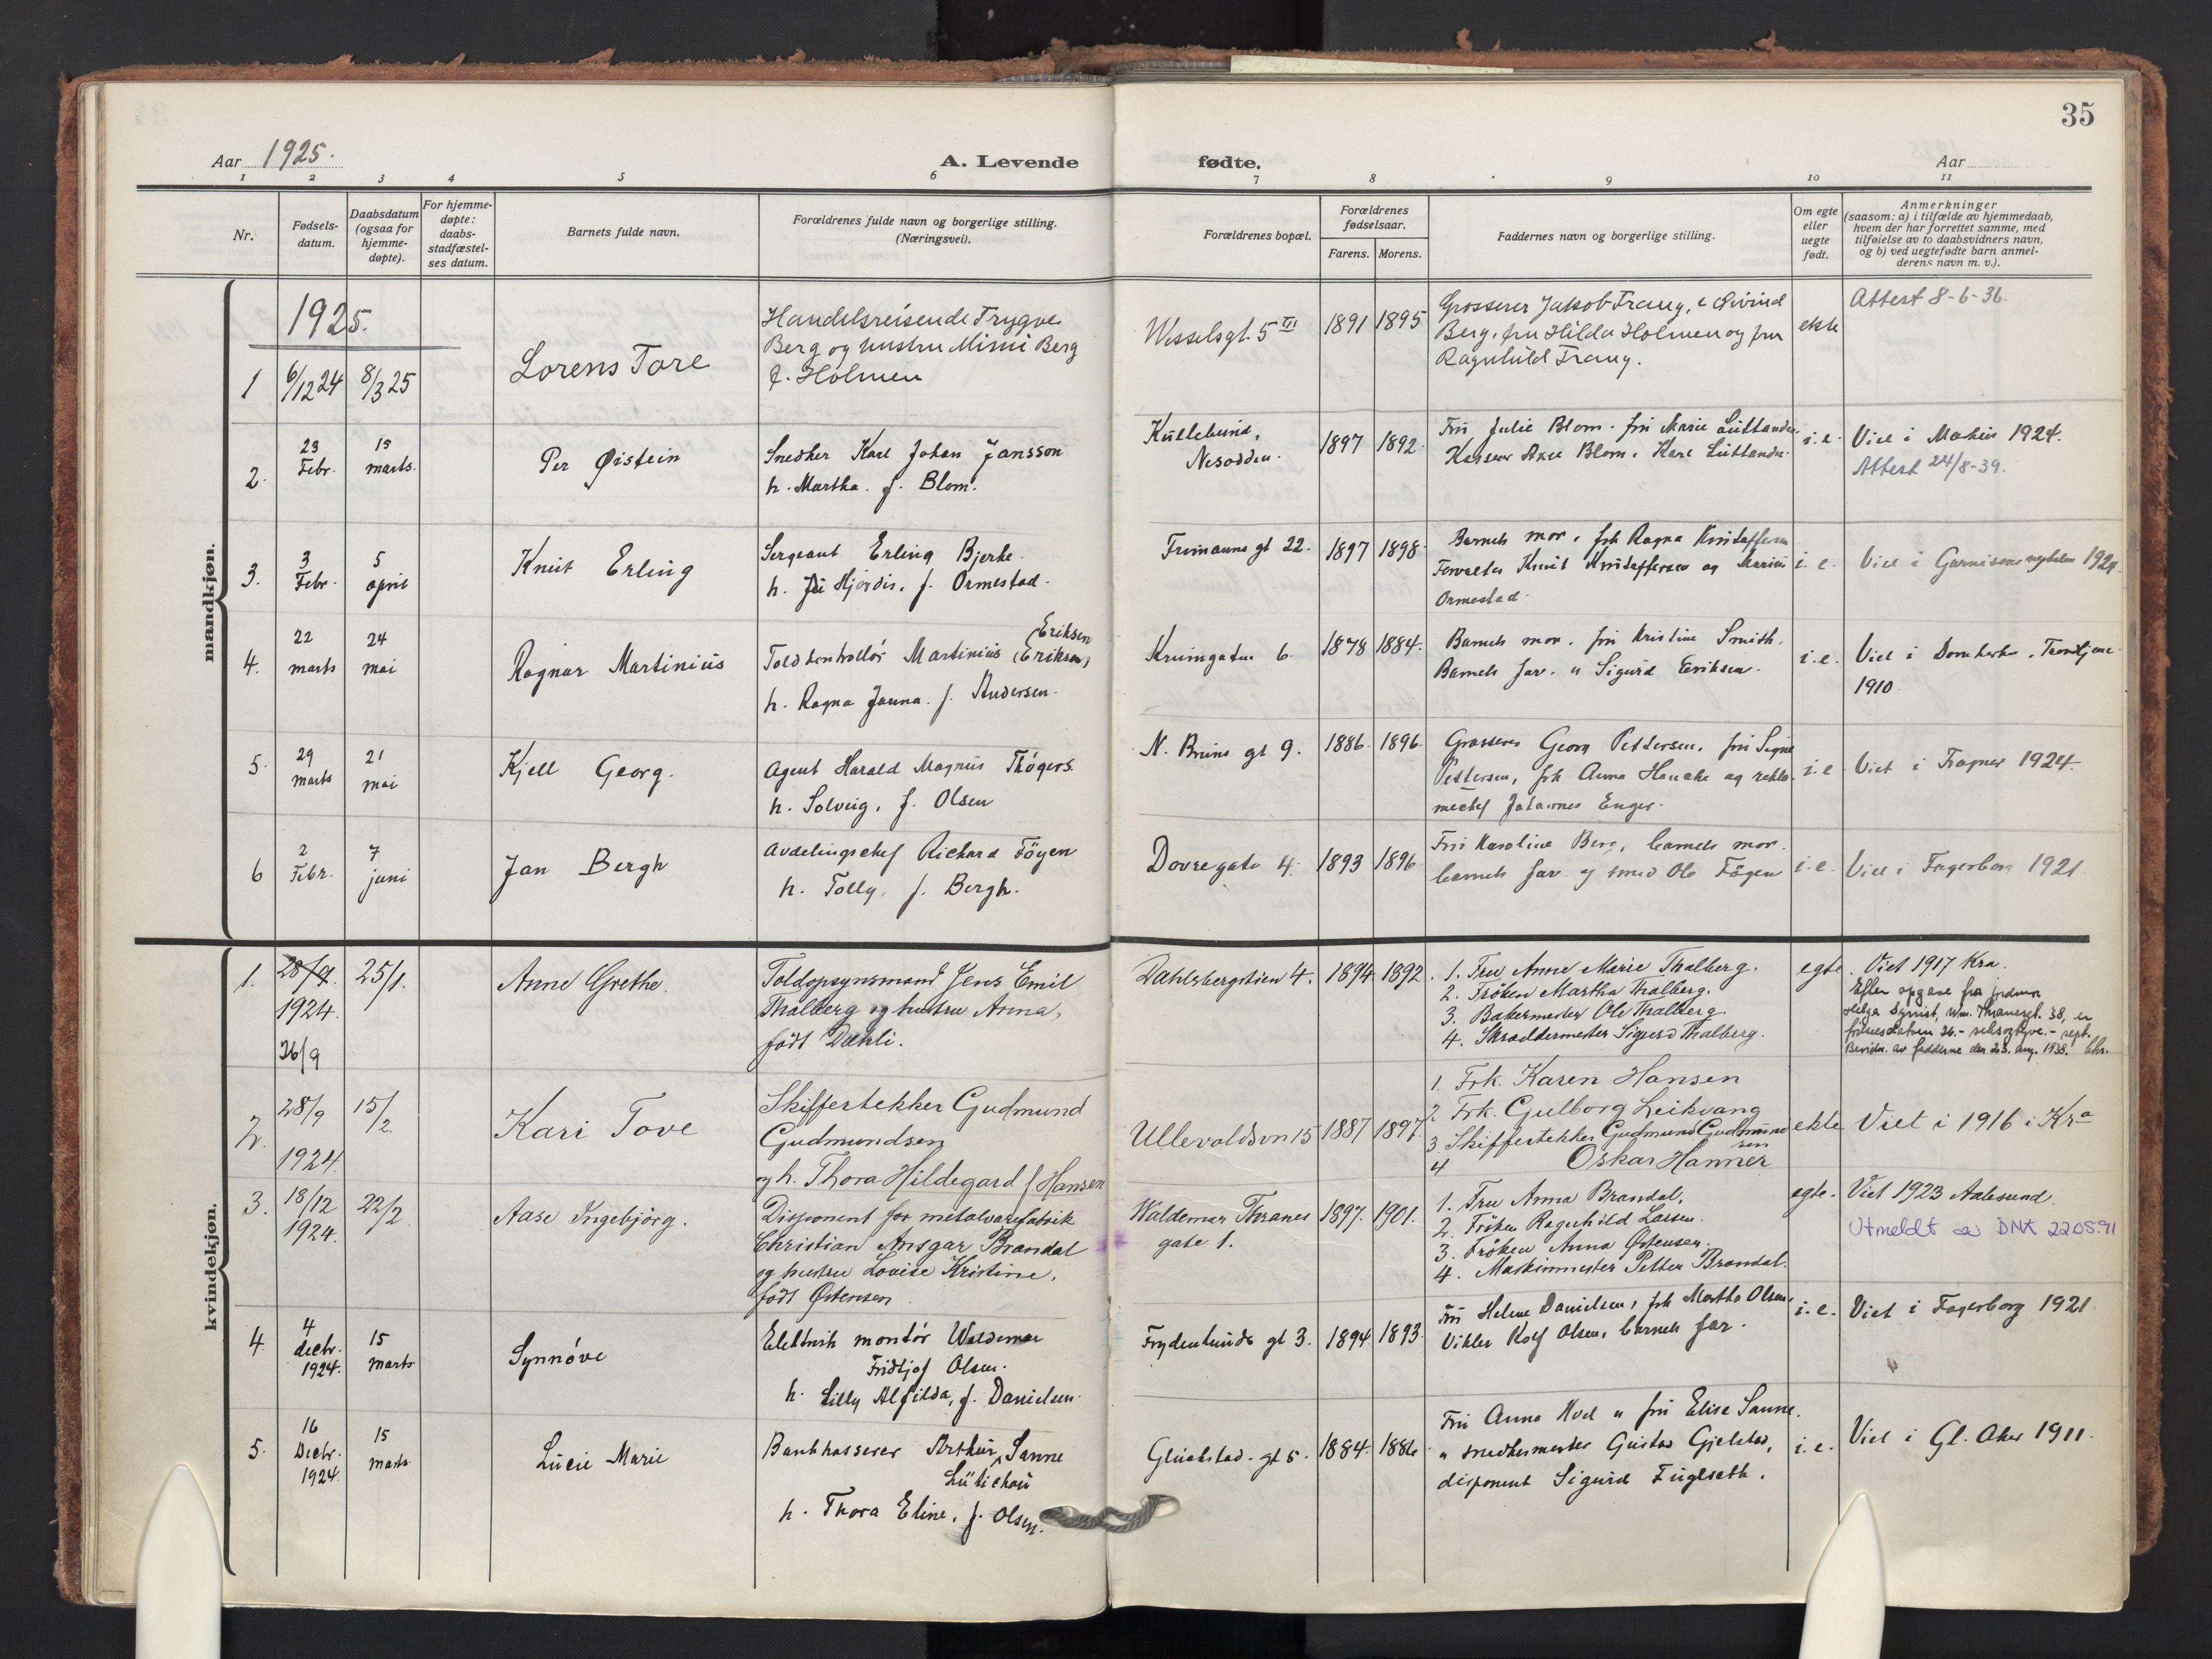 35
Aar 1925.
A. Levende
fødte.
Aar
1 2 3 4 5 6 7 8 9 10 11
Nr.
Fødsels-
datum.
Daabsdatum
(ogsaa for
hjemme-
døpte).
For hjemme-
døpte:
daabs-
stadfæstel-
ses datum.
Barnets fulde navn.
Forældrenes fulde navn og borgerlige stilling.
(Næringsvei).
Forældrenes bopæl.
Forældrenes
fødselsaar.
Farens. Morens.
Faddernes navn og borgerlige stilling.
Om egte
eller
uegte
født.
Anmerkninger
(saasom: a) i tilfælde av hjemmedaab,
hvem der har forrettet samme, med
tilføielse av to daabsvidners navn,
og b) ved uegtefødte barn anmel-
derens navn m. v.).
mandkjøn.
1925.
1
6/12 24
8/3 25
Lorens Tore
Handelsreisende Trygve
Berg og hustru Mimi Berg
f. Holmen
Wesselsgt. 5 III
1891 1895
Grosserer Jakob Traug, Øivind
Berg, fru Hilda Holmen og fru
Ragnhild Traug.
ekte
Attest 8-6-36.
2.
23
Febr.
15
marts.
Per Øistein
Snedker Karl Johan Jansson
h. Martha. f. Blom.
Nesodden.
1897 1892
Fru Julie Blom. fru Marie
Kasserer Blom. Karl
i.e.
Viet i 1924.
Attest 24/8-39.
3.
3
Febr.
5
april
Knut Erling
Sergeant Erling Bjerke.
h. Hjørdis. f. Ormestad.
Frimanns gt 22.
1897 1898
Barnets mor. frk Ragna Kristoffersen
Forvalter Knut Kristoffersen og Marius
Ormestad.
i. e.
Viet i Garnisons 1924.
4.
22
marts
24
mai
Ragnar Martinius
Eriksen
Toldkontrollør Martinius (Eriksen)
h. Ragna Janna. f. Andersen.
Krumgaten 6.
1878 1884.
Barnets mor. fru Kristine Smith.
Barnets far. Sigurd Eriksen.
i.e.
Viet i Domkirke. Trondhjem.
1910.
5.
29
marts
21
mai
Kjell Georg.
Agent Harald Magnus Thøgers.
h. Solveig. f. Olsen
N. Bruns gt 9.
1886. 1896.
Grosserer Georg Pettersen. fru Signe
Pettersen, frk Anna Hancke og
Johannes Enger.
i.e.
Viet i Frogner 1924.
6
2
Febr.
7
juni
Jan Bergh
Avdelingschef Richard Föyen
h. Tolly. f. Bergh.
Dovregate 4.
1893 1896
Fru Karoline Berg, barnets mor.
barnets far og smed Ole Föyen
i.e.
Viet i Fagerborg 1921
kvindekjøn.
1.
28/9.
1924.
26/9
25/1.
Anne Grethe.
Toldopsynsmand Jens Emil
Thalberg og hustru Anna,
født Dæhli.
Dahlsbergstien 4.
1894 1892.
1. Fru Anne Marie Thalberg.
2. Frøken Martha Thalberg.
3. Bakermester Ole Thalberg.
4. Skræddermester Sigurd Thalberg.
egte.
Viet 1917 Kra.
Efter opgave fra
Helga 38, er
26. - seksogtyve. - sept.
Bevidn. av fadderne den 23. Aug. 1938. Chr.
2.
28/9
1924.
15/2.
Kari Tove
Skiffertekker Gudmund
Gudmundsen
og h. Thora Hildegard f. Hansen
Ullevoldsvn 15
1887 1897
1. Frk. Karen Hansen
2. Frk. Gulborg Leikvang
3. Skiffertekker Gudmund Gudmund
sen
4 Oskar Hanner
ekte
Viet i 1916 i Kra
3.
18/12
1924.
22/2
Aase Ingebjörg.
Disponent for metalvarefabrik
Christian Ansgar Brandal
og hustru Lovise Kristine,
født Østensen
Waldemar Thranes
gate 1.
1897. 1901.
1. Fru Anna Brandal.
2. Frøken Ragnhild Larsen.
3. Frøken Anna Østensen.
4. Maskinmester Petter Brandal.
egte.
Viet 1923 Aalesund.
Utmeldt av DNK 22.05.91
4.
4
decbr.
1924.
15
marts
Synnöve
Elektrisk montör Waldemar
Fridtjof Olsen.
h. Lilly Alfilda, f. Danielsen.
Frydenlunds gt 3.
1894 1893
Fru Helene Danielsen, frk Martha Olsen,
Vikler Rolf Olsen, barnets far.
i.e.
Viet i Fagerborg 1921.
5.
16
Decbr.
1924
15
marts
Lucie Marie
Bankkasserer Arthur, Sanne
Lütichau
h. Thora Eline. f. Olsen.
Glückstad. gt 5.
1884. 1886
Fru Anna Hvel fru Elise Sanne.
snedkermester Gustav Gjelstad,
disponent Sigurd Fuglseth.
i. e.
Viet i Gl. Aker 1911.